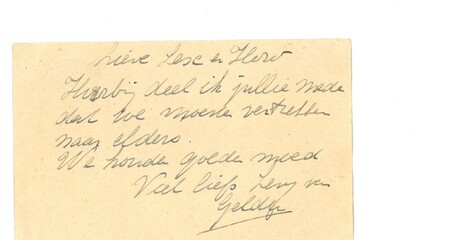 Lieve Lex en
Hierbij deel ik jullie mede
dat we moeten vertrekken
naar elders.
We houden goeden moed
Veel liefs van
Gelder